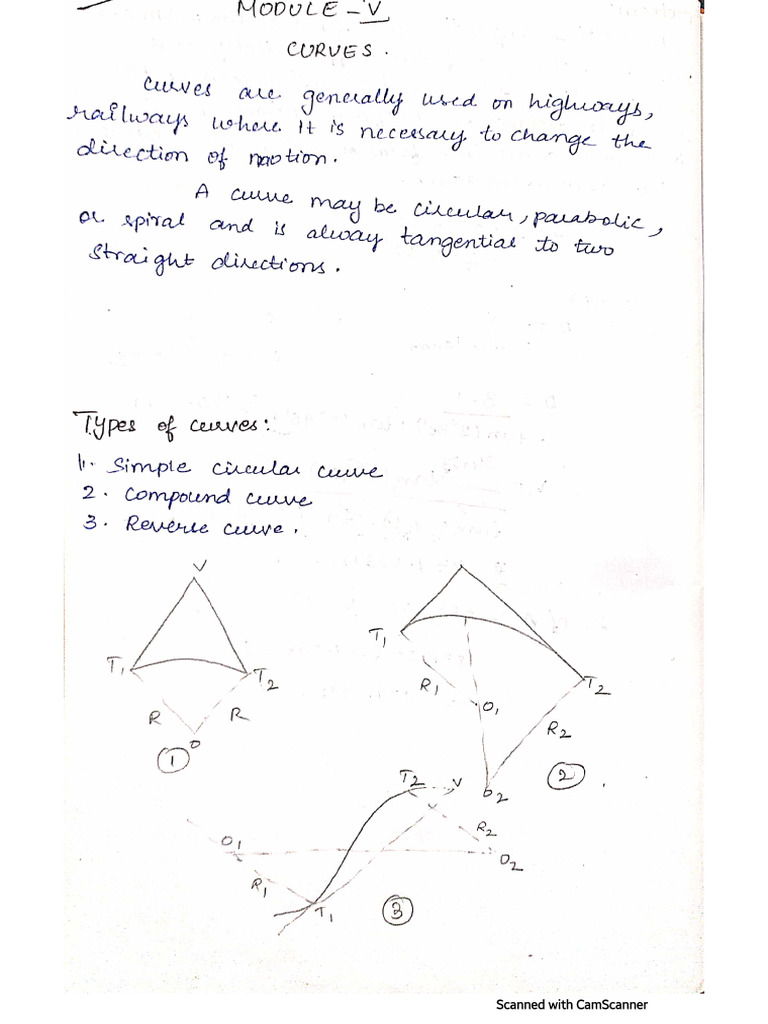 MODULE - V
CURVES.
curves are generally used on highways,
railways where it is necessary to change the
direction of motion.
A curve may be circular, parabolic,
or spiral and is alway tangential to two
straight directions.
Types of curves:
1. Simple circular curve
2. Compound curve
3. Reverse curve.
V
T1
T2
R
R
O
1
T1
T2
R1
O1
R2
O2
2
T2
V
R2
O1
O2
R1
T1
3
Scanned with CamScanner